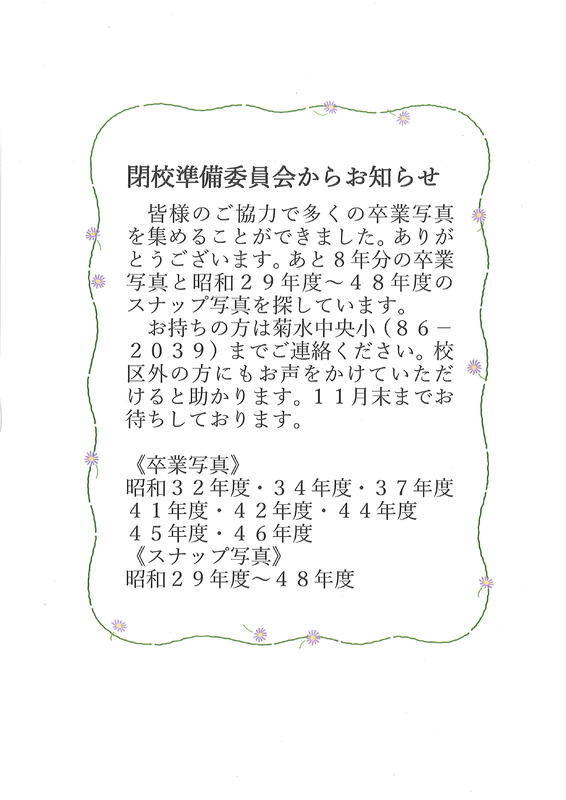 閉校準備委員会からお知らせ
　皆様のご協力で多くの卒業写真
を集めることができました。ありが
とうございます。あと８年分の卒業
写真と昭和２９年度～４８年度の
スナップ写真を探しています。
　お持ちの方は菊水中央小（８６－
２０３９）までご連絡ください。校
区外の方にもお声をかけていただ
けると助かります。１１月末までお
待ちしております。
《卒業写真》
昭和３２年度・３４年度・３７年度
４１年度・４２年度・４４年度
４５年度・４６年度
《スナップ写真》
昭和２９年度～４８年度